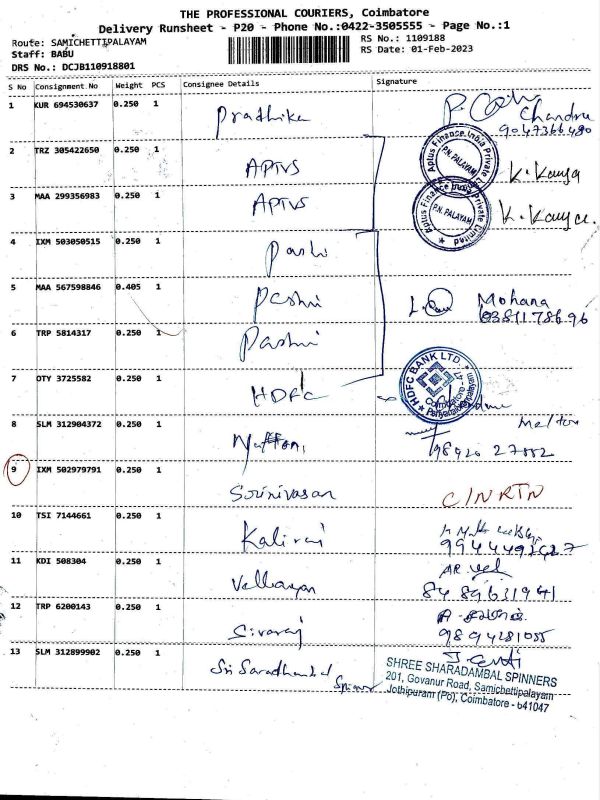 THE PROFESSIONAL COURIERS, Coimbatore
Delivery Runsheet - P20 - Phone No.:0422-3505555 - Page No.:1
Route: SAMICHETTIPALAYAM
Staff: BABU
DRS No.: DCJB110918801
RS No.: 1109188
RS Date: 01-Feb-2023
S No Consignment.No Weight PCS Consignee Details Signature
1 KUR 694530637 0.250 1 Pradhika Chandru
9047366480
2 TRZ 305422650 0.250 1 APTUS Aptus Finance India Private Limited P.N. PALAYAM K. Kavya
3 MAA 299356983 0.250 1 APTUS Aptus Finance India Private Limited P.N. PALAYAM K. Kavya
4 IXM 503050515 0.250 1
5 MAA 567598846 0.405 1 Mohana
6 TRP 5814317 0.250 1
7 OTY 3725582 0.250 1 HDFC HDFC BANK LTD. Coimbatore - 47
8 SLM 312904372 0.250 1
98420 27552
9 IXM 502979791 0.250 1 Srinivasan C/N RTN
10 TSI 7144661 0.250 1 Kaliraj
11 KDI 508304 0.250 1 AR. vel
8489631941
12 TRP 6200143 0.250 1 Sivaraj
9894281055
13 SLM 312899902 0.250 1 Sri Saradhambal
SHREE SHARADAMBAL SPINNERS
201, Govanur Road, Samichettipalayam
Jothipuram (Po), Coimbatore - 641047